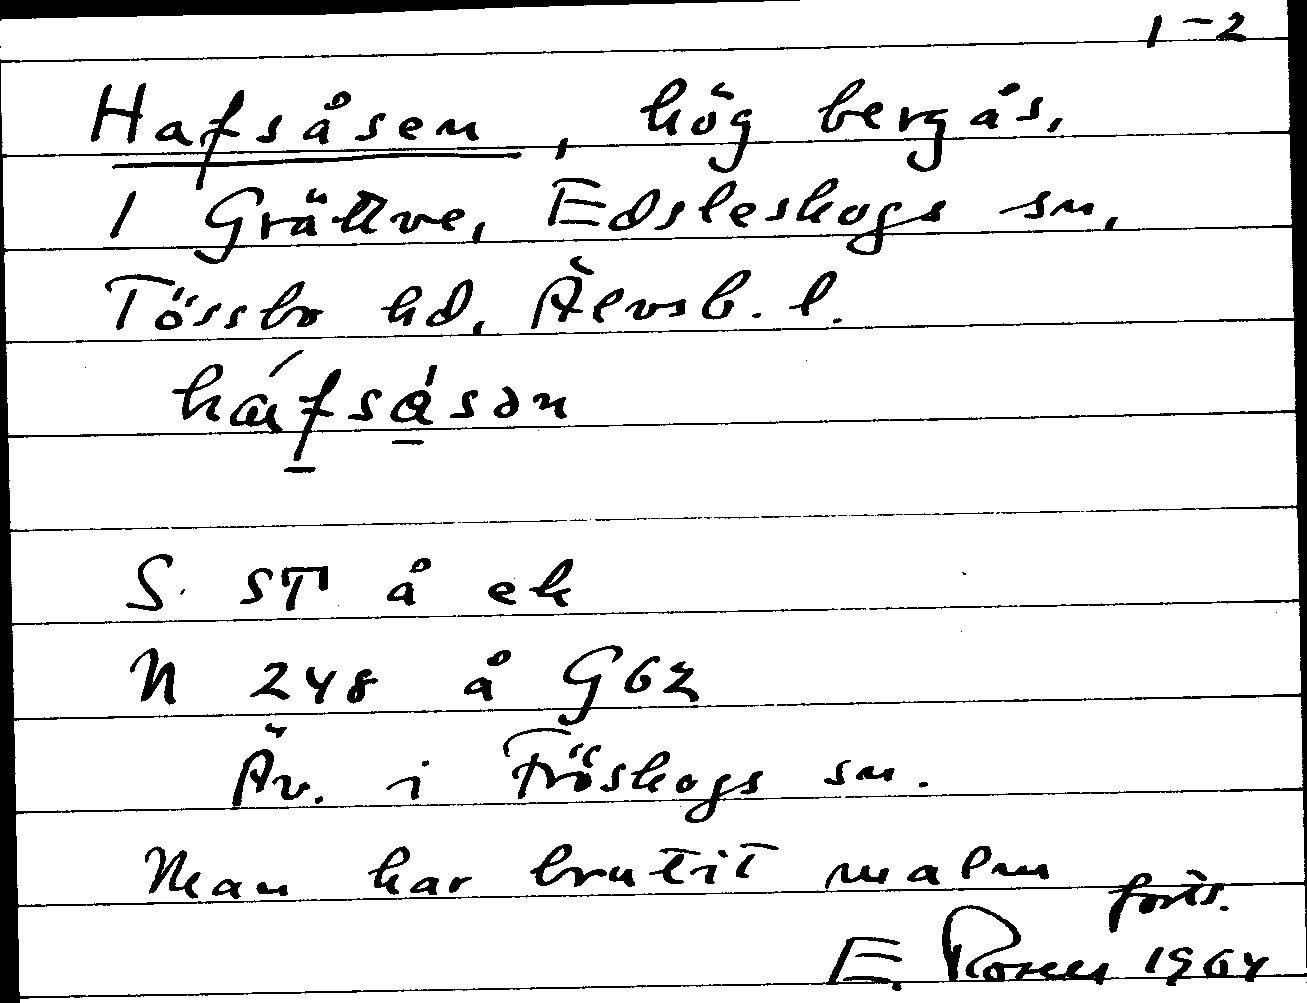 1-2
Hafsåsen, hög bergås,
I Grättve, Edsleskogs sn,
Tössbo hd, Älvsb. l.
S. ST å ek
N 248 å G62
Äv. i Fröskogs sn.
Man har brutit malm forts.
E. 1964